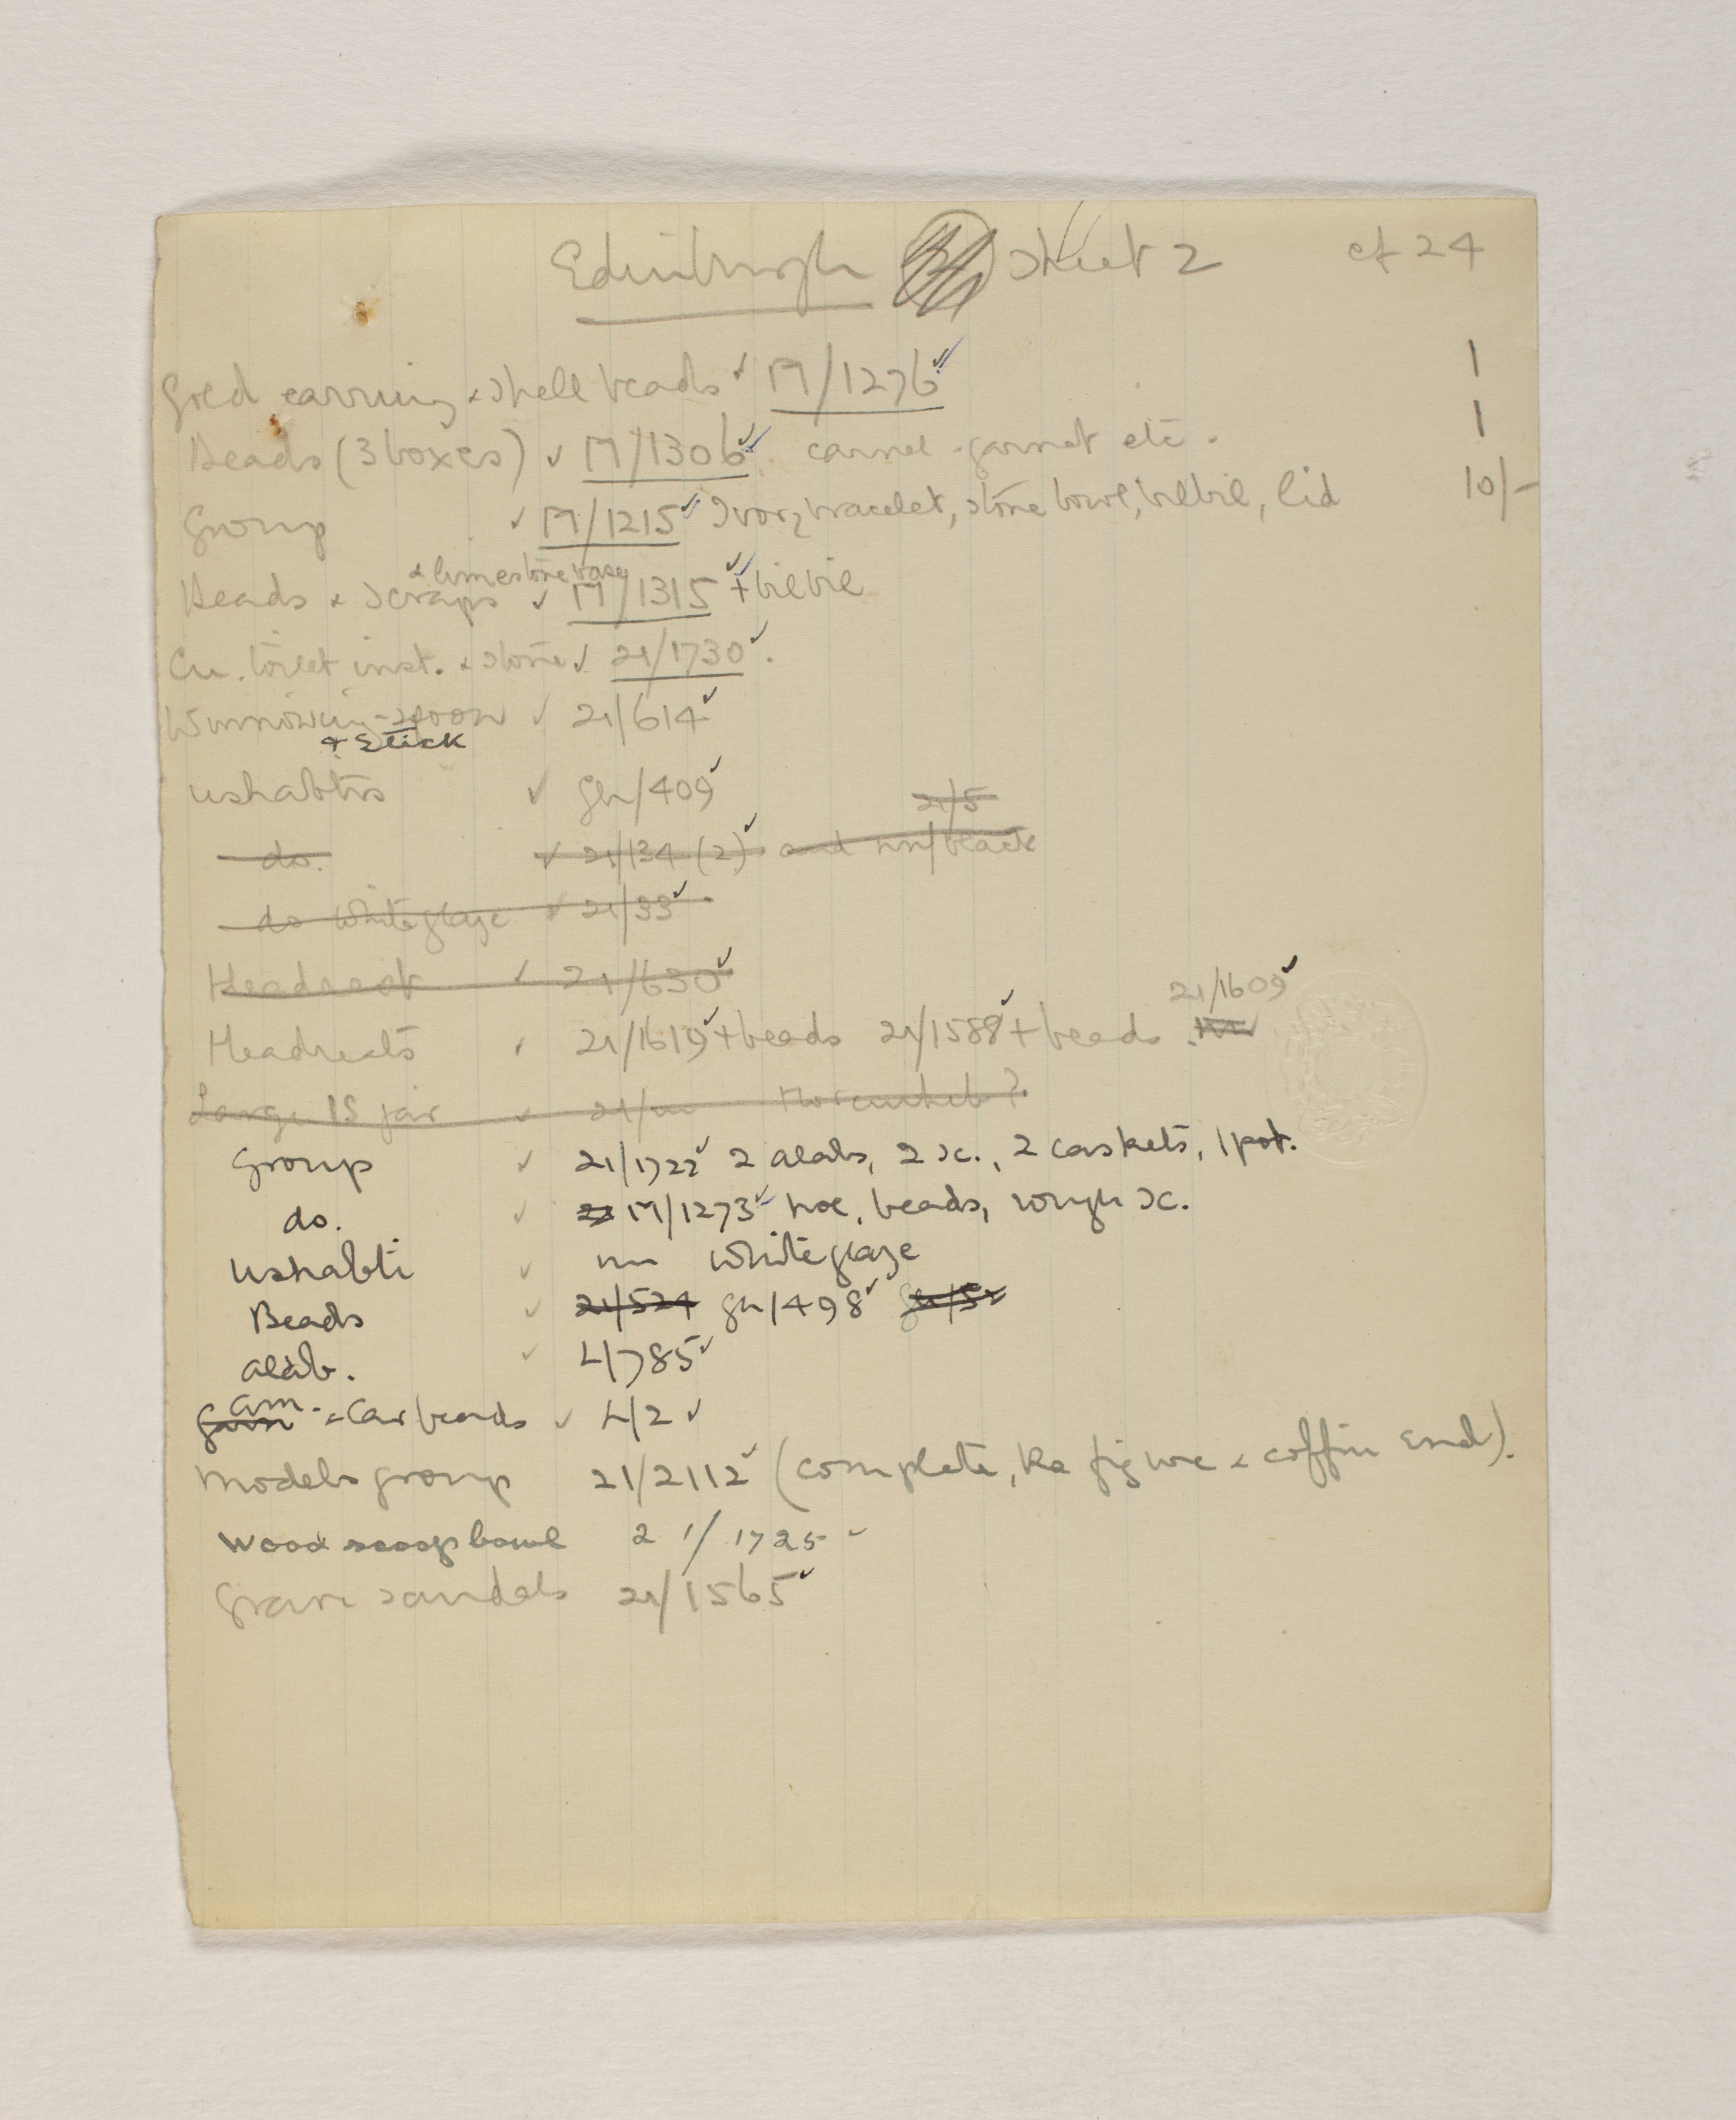 Edinburgh sheet 2 cf 24
Gold earring & shell beads ✓ M/1276 ✓ 1
Beads (3 boxes) ✓ M/1306 ✓ carnel. garnet etc. 1
Group ✓ M/1215 ✓ Ivory bracelet, stone bowl, bilbil, lid 10/-
& limestone vase
Beads & scraps ✓ M/1315 ✓ + bilbil
Cu. toilet inst. & stone ✓ 21/1730 ✓.
Winnowing-spoon ✓ 21/614 ✓
& stick
ushabtis ✓ Gu/409 ✓
21/5
do. ✓ 21/134 (2) ✓ and nn/black
do white glaze ✓ 21/33 ✓
Headrest ✓ 21/630 ✓
21/1609 ✓
Headrests ✓ 21/1619 ✓ + beads 21/1588 ✓ + beads
Large IS jar ✓ 21/nn Horemheb?
Group ✓ 21/1722 ✓ 2 alabs, 2 sc., 2 caskets, 1 pot.
do. ✓ M/1273 ✓ hoe, beads, rough sc.
ushabti ✓ nn white glaze
Beads ✓ 21/524 Gu/498 ✓ Gu/52
alab. ✓ 4/785 ✓
am.
garn & car beads ✓ 4/2 ✓
Models group 21/2112 ✓ (complete, Ka figure & coffin end).
Wood scoop bowl 21/1725 ✓
Grave sandals 21/1565 ✓